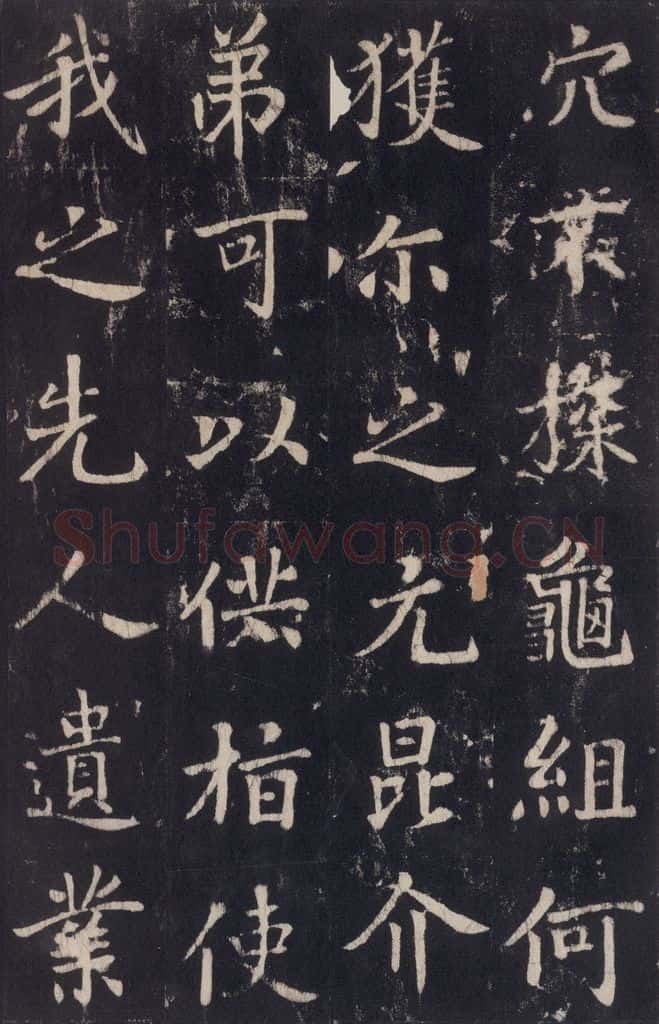 穴龜組何
獲尔之元昆介
弟可以供指使
我之先人遺業
Shufawang.CN